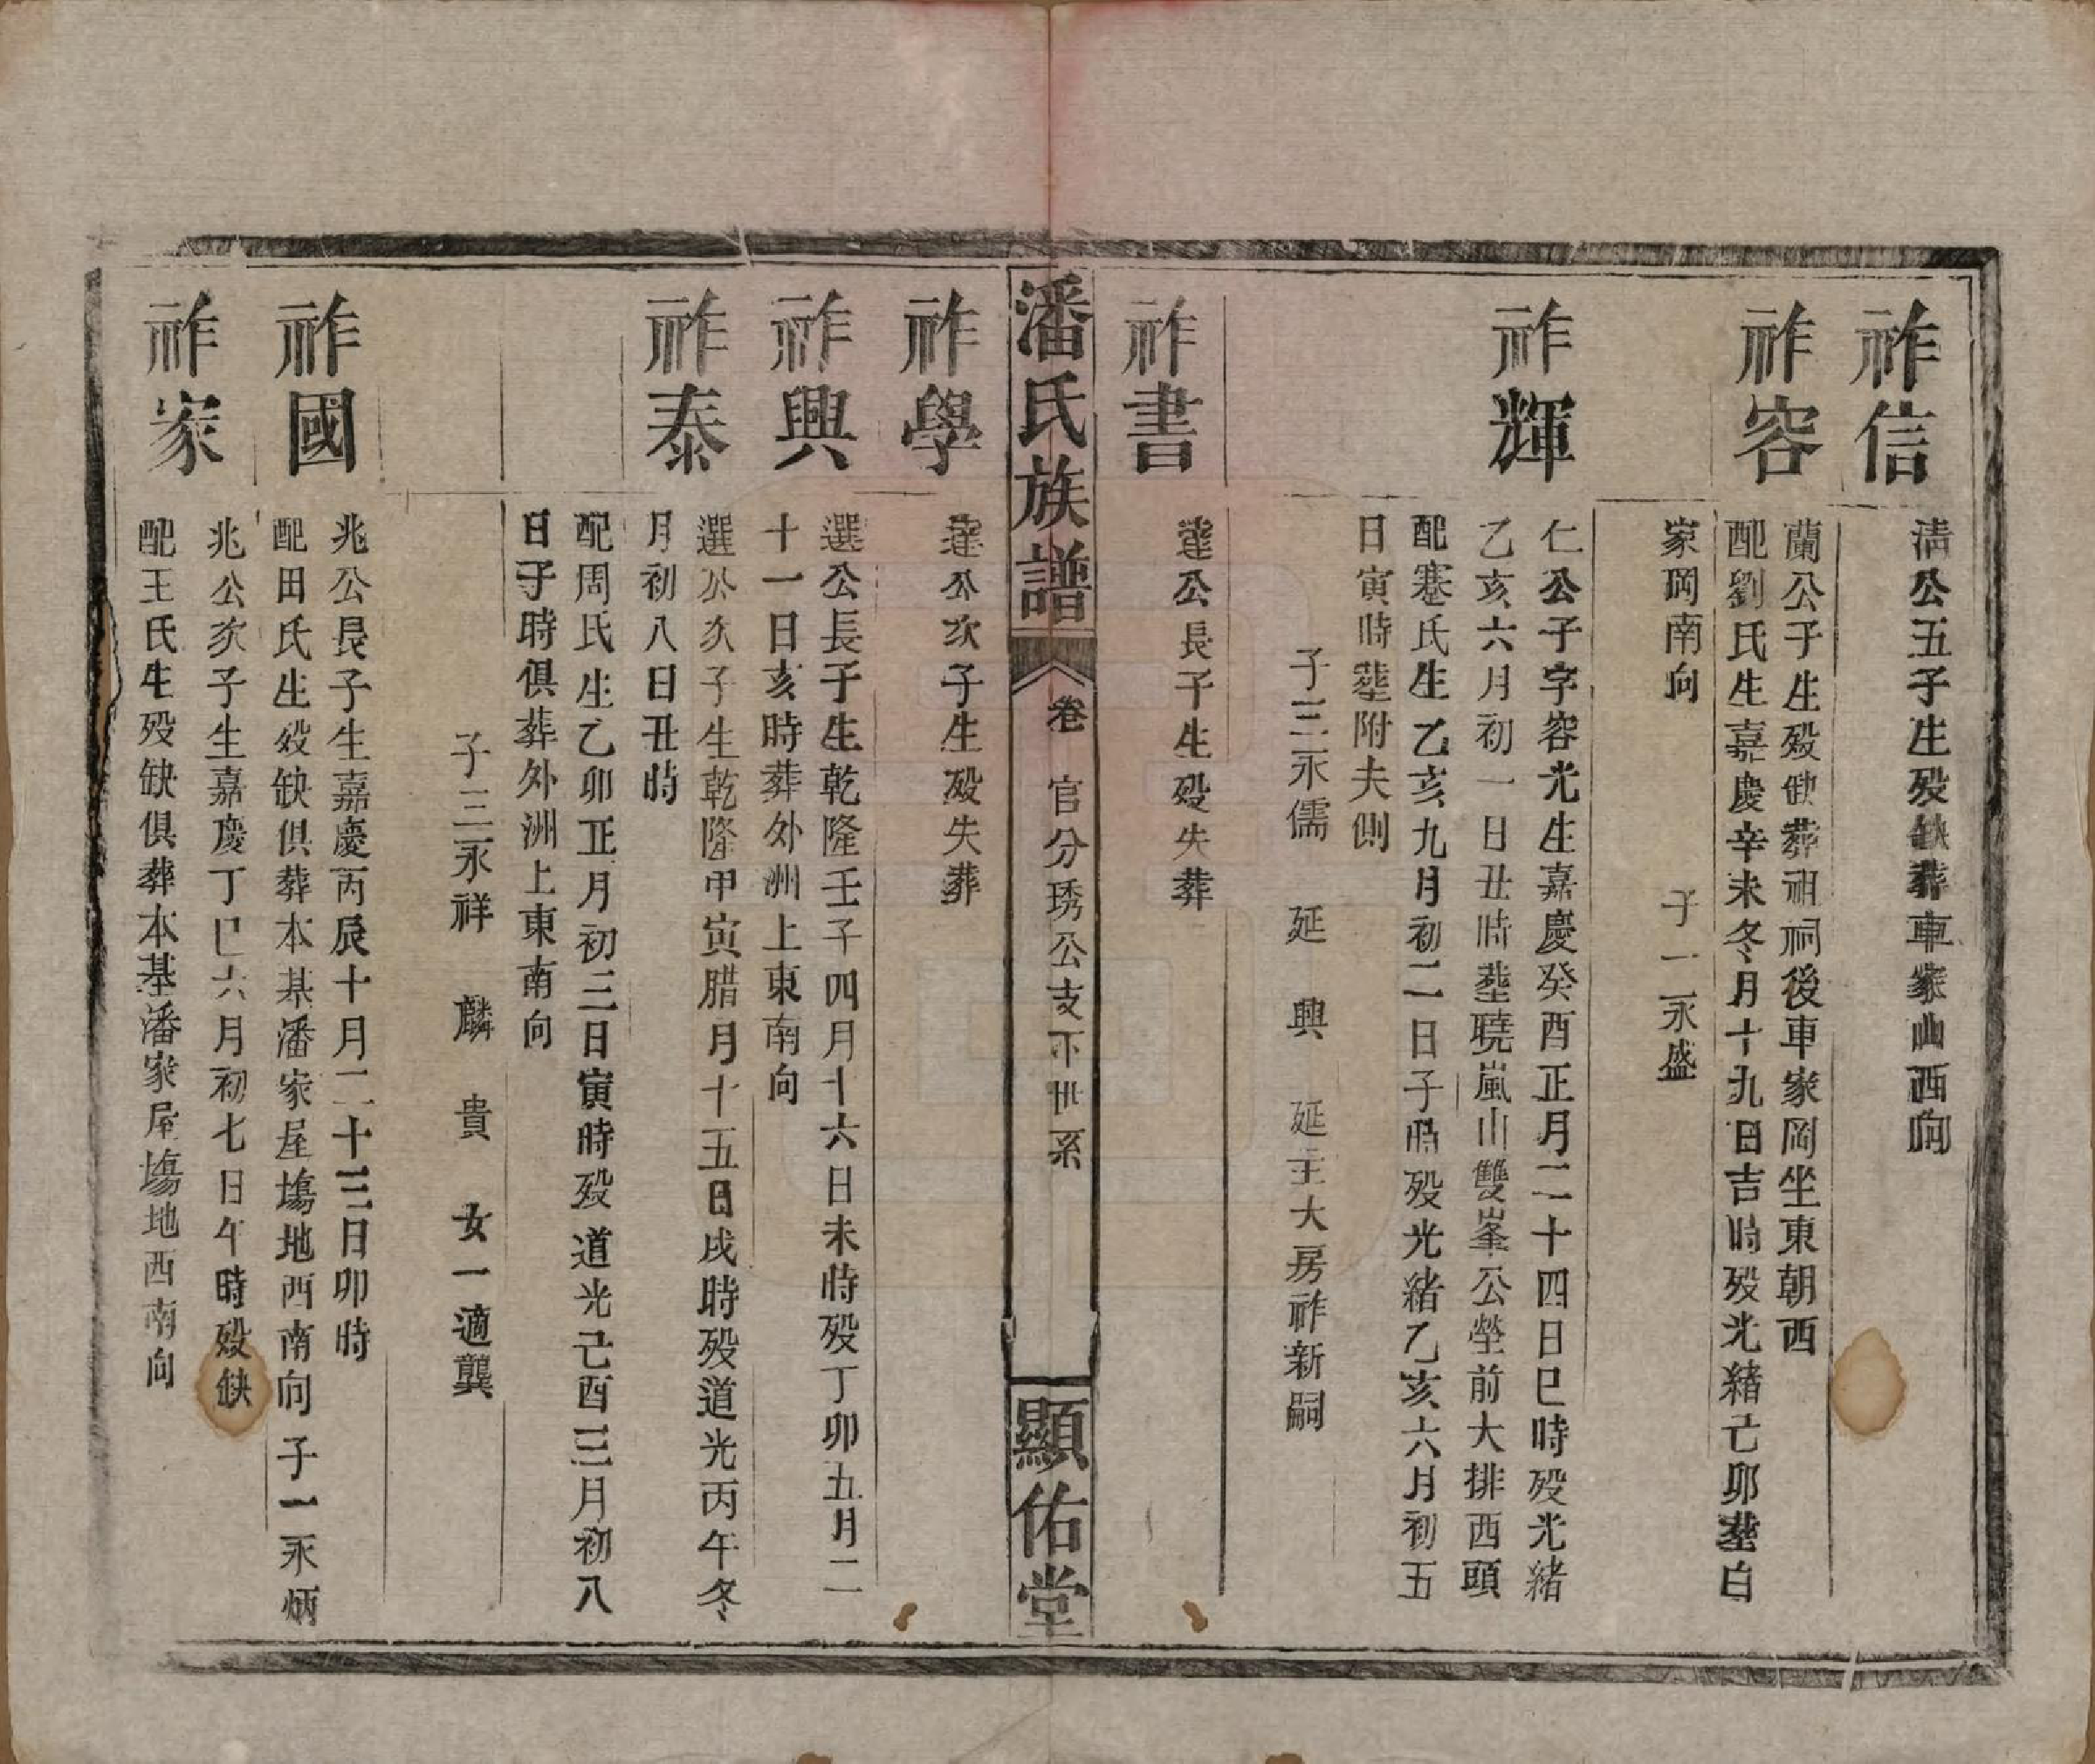 祚信
清公五子生殁缺葬車家山西向
祚容
蘭公子生殁缺葬祖祠後車家岡坐東朝西
配劉氏生嘉慶辛未冬月十九日吉時殁光緒己卯塟白
家岡南向　子一永盛
祚輝
仁公子字容光生嘉慶癸酉正月二十四日巳時殁光緒
乙亥六月初一日丑時塟曉嵐山雙峯公塋前大排西頭
配蹇氏生乙亥九月初二日子時殁光緒乙亥六月初五
日寅時塟附夫側
子三永儒　延　興　延主大房祚新嗣
祚書
達公長子生殁失葬
潘氏族譜
卷　官分琇公支下世系
顯佑堂
祚學
達公次子生殁失葬
祚興
選公長子生乾隆壬子四月十六日未時殁丁卯五月二
十一日亥時葬外洲上東南向
祚泰
選公次子生乾隆甲寅腊月十五日戌時殁道光丙午冬
月初八日丑時
配周氏生乙卯正月初三日寅時殁道光己酉三月初八
日子時俱葬外洲上東南向
子三永祥　麟　貴　女一適龔
祚國
兆公長子生嘉慶丙辰十月二十三日卯時
配田氏生殁缺俱葬本基潘家屋塲地西南向　子一永炳
祚家
兆公次子生嘉慶丁巳六月初七日午時殁缺
配王氏生殁缺俱葬本基潘家屋塲地西南向